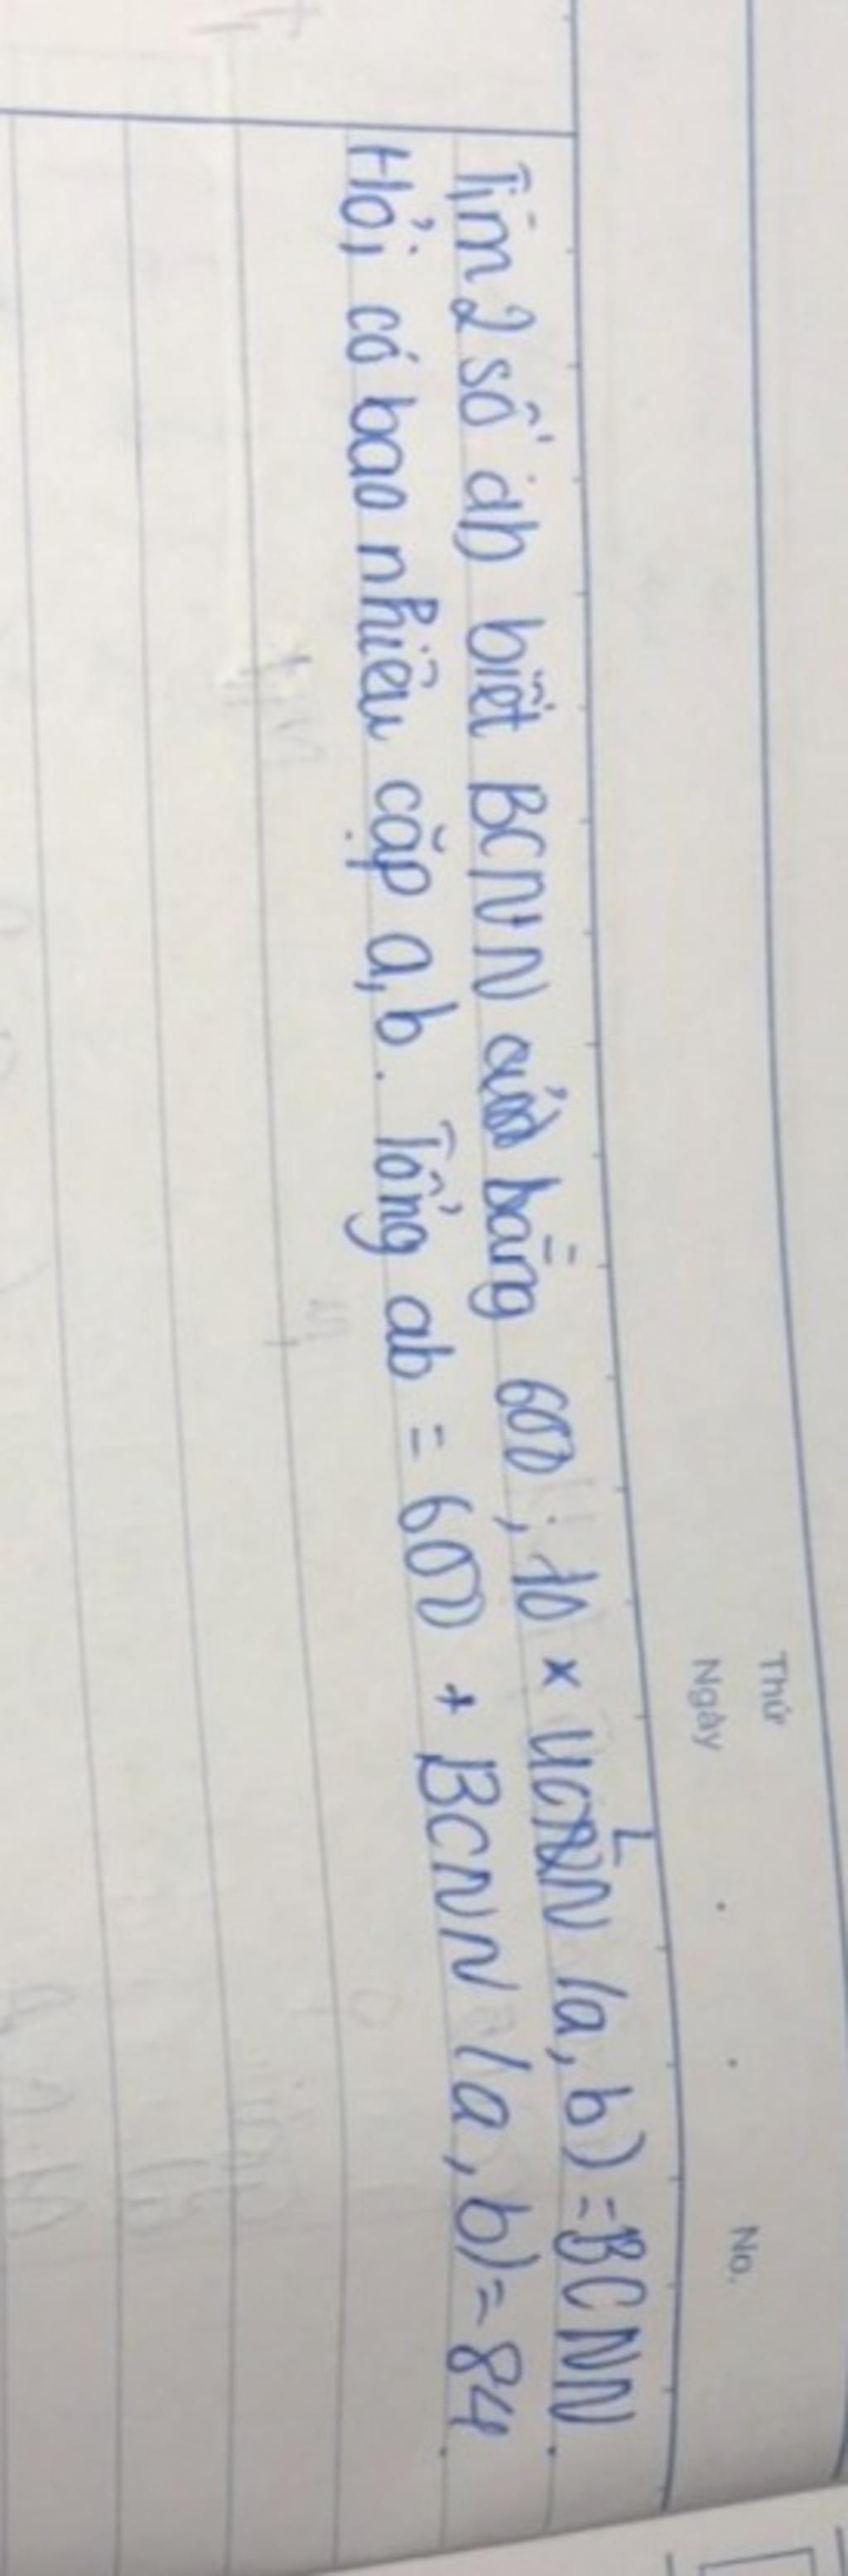 Thứ
Ngày No.
Tìm 2 số ab biết BCNN của bằng 600 ; 10 x ƯCLN (a, b) = BCNN.
Hỏi có bao nhiêu cặp a, b. Tổng ab = 600 + BCNN (a, b) = 84.